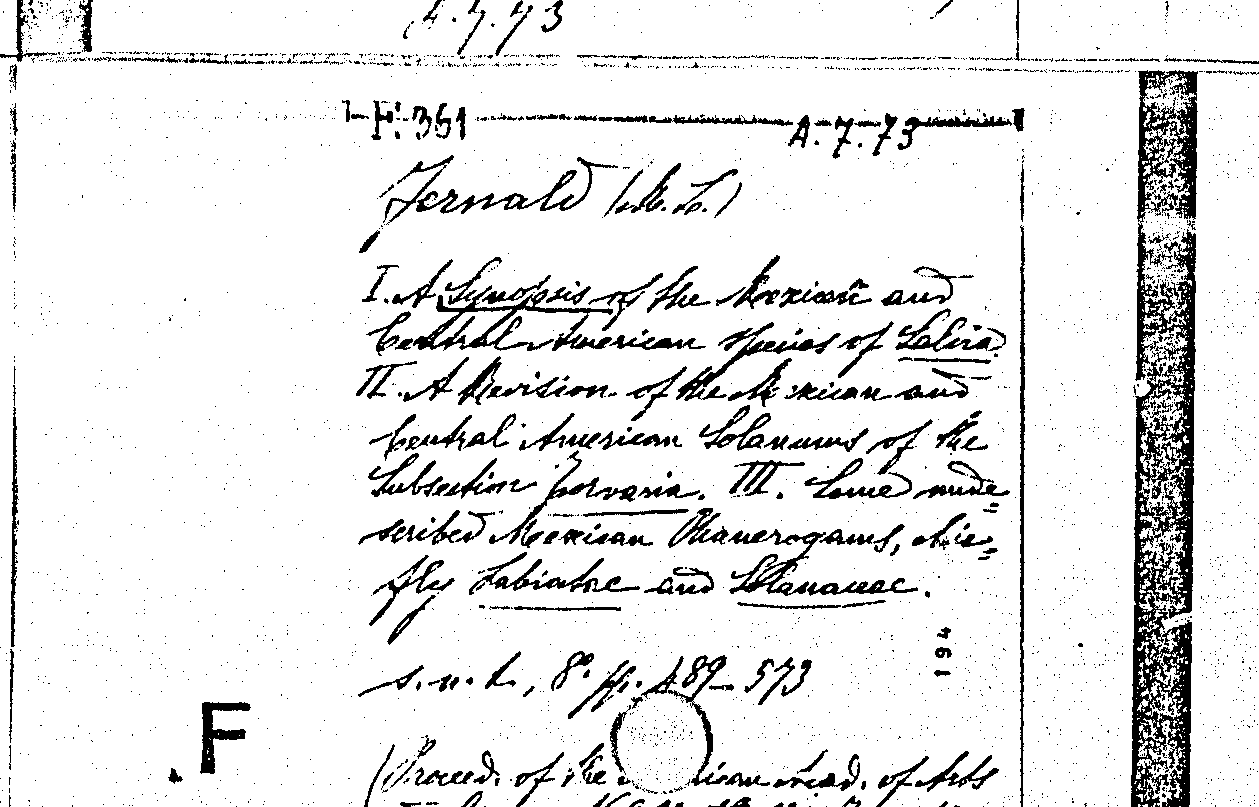 A.7.73
F.351
A.7.73
Fernald (M. L.)
I. A Synopsis of the Mexican and
Central American Species of Salvia.
II. A Revision of the Mexican and
Central American Solanums of the
Subsection Torvaria. III. Some unde=
scribed Mexican Phanerogams, chie=
fly Labiatae and Solanaceae.
194
s.n.t., 8° pp. 489-573
F
(Proceed. of the ican Acad. of Arts